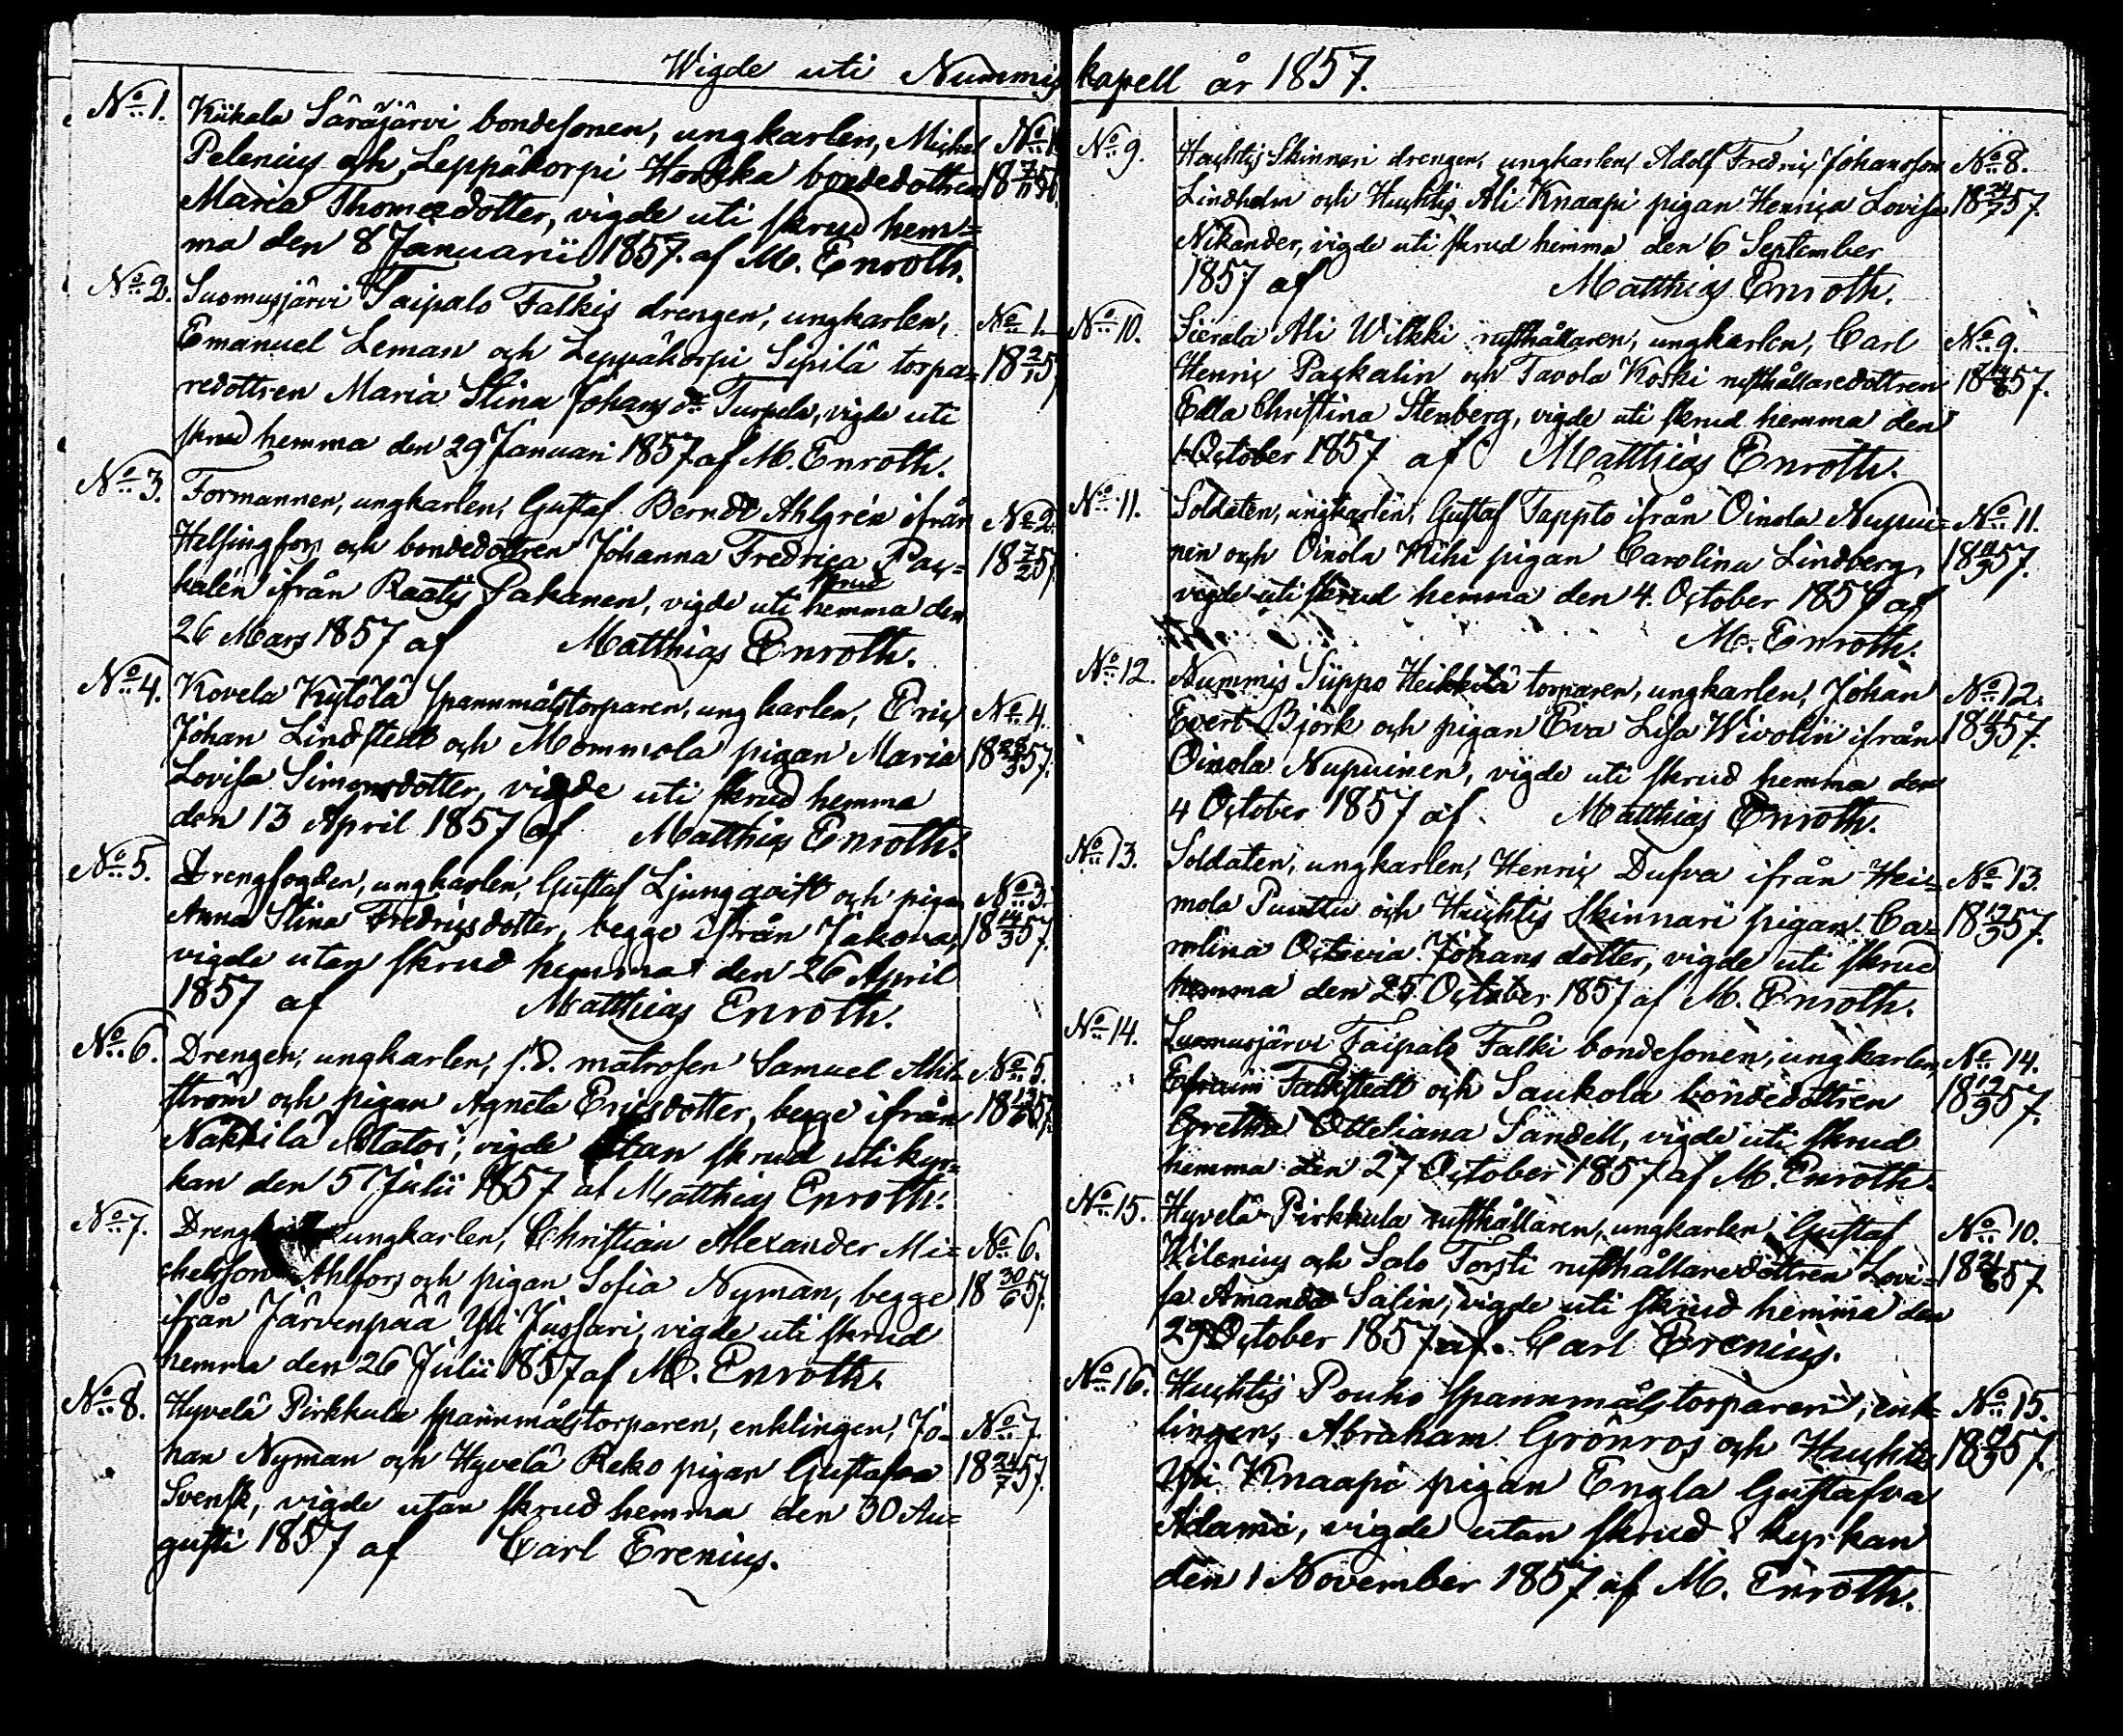 Wigde uti Nummis kapell år 1857.
No 1. Kiikala Säräjärvi bondesonen, ungkarlen, Michel No 1
Pelenius och Leppäkorpi Hookka bondedottren 18 7/11 56.
Maria Thomædotter, vigde uti skrud hem=
ma den 8 Januarii 1857. af M. Enroth.
No 2. Suomusjärvi Taipalo Falkis drengen, ungkarlen, No 1.
Emanuel Leman och Leppäkorpi Sipilä torpa= 18 2/1 57
redottren Maria Stina Johans dr Turpela, vigde uti
skrud hemma den 29 Januari 1857 af M. Enroth.
No 3. Formannen, ungkarlen, Gustaf Berndt Ahlgrén ifrån No 2.
Helsingfors och bondedottren Johanna Fredrica Pas= 18 7/2 57.
kalin ifrån Raatis Pakanen, vigde uti skrud hemma den
26 Mars 1857 af Matthias Enroth.
No 4. Kovela Kytölä spannmålstorparen, ungkarlen, Eric No 4.
Johan Lindstedt och Mommola pigan Maria 18 22/3 57.
Lovisa Simonsdotter, vigde uti skrud hemma
den 13 April 1857 af Matthias Enroth.
No 5. Drengfogden, ungkarlen, Gustaf Ljungqvist och pigan No 3.
Anna Stina Fredricsdotter, begge ifrån Jakova, 18 14/3 57.
vigde utan skrud hemma den 26 April
1857 af Matthias Enroth.
No 6. Drengen, ungkarlen, f.d. matrosen Samuel Ahl= No 5.
ström och pigan Agneta Ericsdotter, begge ifrån 18 57.
Nakkila Matoi, vigde utan skrud uti kyr=
kan den 5 Julii 1857 af Matthias Enroth.
No 7. ungkarlen, Christian Alexander Mi= No 6.
chelsson Ahlfors och pigan Sofia Nyman, begge 18 30/6 57.
ifrån Järvenpää Yli Jussari, vigde uti skrud
hemma den 26 Julii 1857 af M. Enroth.
No 8. Hyvelä Pirkkula spannmålstorparen, enklingen, Jo= No 7.
han Nyman och Hyvelä Reko pigan Gustafva 18 24/7 57.
Svensk, vigde utan skrud hemma den 30 Au=
gusti 1857 af Carl Erenius.
No 9. Huchtis Skinnari drengen, ungkarlen, Adolf Fredric Johansson No 8.
Lindholm och Huchtis Ali Knaapi pigan Henrica Lovisa 18 24/7 57.
Nikander, vigde uti skrud hemma den 6 September
1857 af Matthias Enroth.
No 10. Sierala Ali Wilkki rusthållaren, ungkarlen, Carl No 9.
Henric Paskalin och Tavola Koski rusthållaredottren 18 57.
Edla Christina Stenberg, vigde uti skrud hemma den
1 October 1857 af Matthias Enroth.
No 11. Soldaten, ungkarlen, Gustaf Tappto ifrån Oinola Nupui= No 11.
nen och Oinola Kihi pigan Carolina Lindberg, 18 57.
vigde uti skrud hemma den 4. October 1857 af
M. Enroth.
No 12. Nummis Siippo Heikkilä torparen, ungkarlen, Johan No 12.
Evert Björk och pigan Eva Lisa Wivolin ifrån 18 57.
Oinola Nupuinen, vigde uti skrud hemma den
4 October 1857 af Matthias Enroth.
No 13. Soldaten, ungkarlen, Henric Dufva ifrån Hei= No 13.
mola Punttu och Huchtis Skinnari pigan Ca= 18 12/9 57.
rolina Octavia Johans dotter, vigde uti skrud
hemma den 25 October 1857 af M. Enroth.
No 14. Suomusjärvi Taipalo Falki bondesonen, ungkarlen, No 14.
Efraim Falkstedt och Saukola bondedottren 18 19/9 57.
Gretha Otteliana Sandell, vigde uti skrud
hemma den 27 October 1857 af M. Enroth.
No 15. Hyvelä Pirkkula rusthållaren, ungkarlen Gustaf No 10.
Kilenius och Salo Torsti rusthållaredottren Lovi= 18 57
sa Amanda Salin, vigde uti skrud hemma den
29 October 1857 af Carl Erenius.
No 16. Huchtis Pouho spannmålstorparen, enk= No 15.
lingen, Abraham Grönros och Huchtis 18 57.
Yli Knaapi pigan Engla Gustafva
Adami, vigde utan skrud i kyrkan
den 1 November 1857 af M. Enroth.